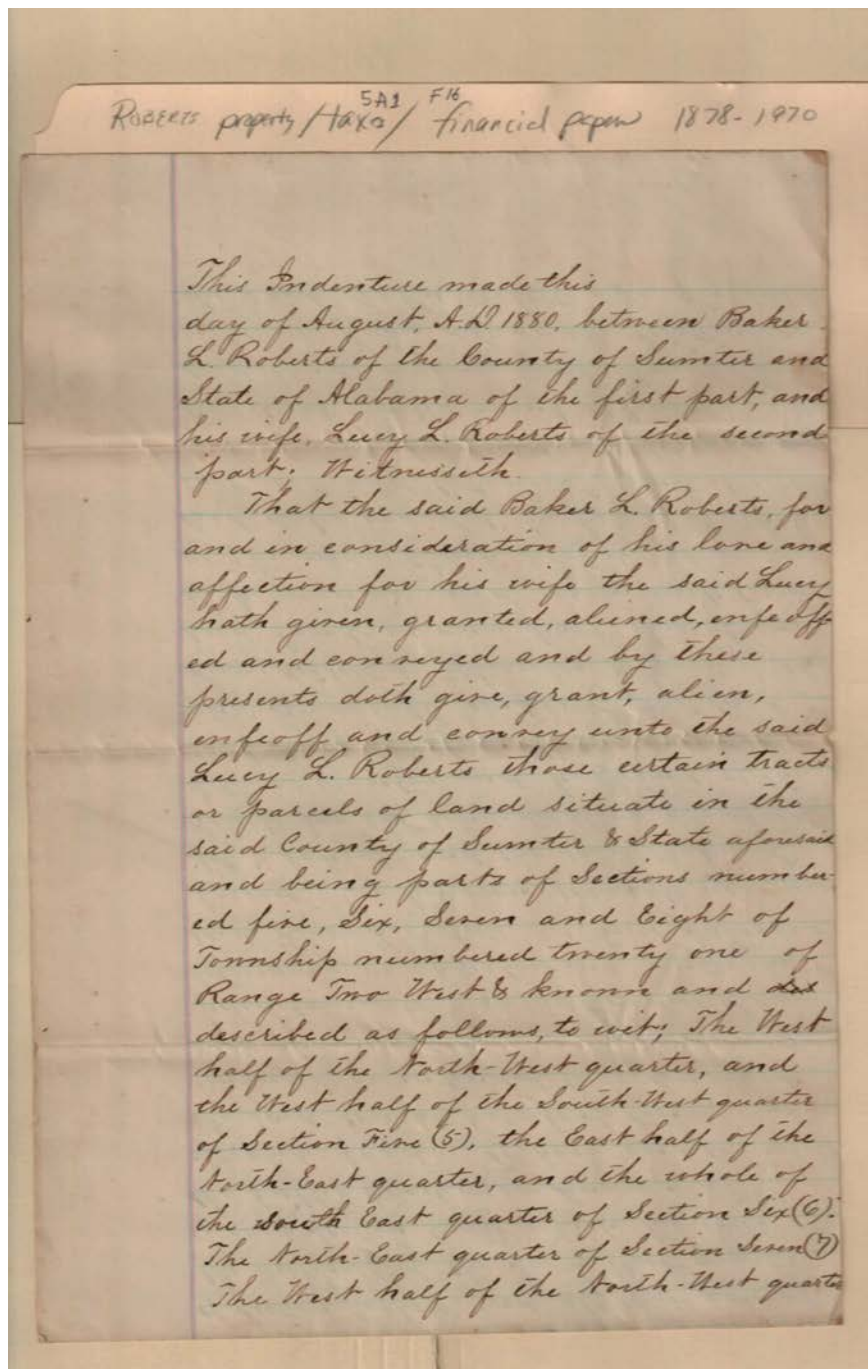 5A1 F16
ROBERTS property/taxes/financial papers 1878-1970
This Indenture made this
day of August, A.D. 1880, between Baker
L. Roberts of the County of Sumter and
State of Alabama of the first part, and
his wife, Lucy L. Roberts of the second
part; Witnesseth.
That the said Baker L. Roberts, for
and in consideration of his love and
affection for his wife the said Lucy
hath given, granted, aliened, enfeoff-
ed and conveyed and by these
presents doth give, grant, alien,
enfeoff and convey unto the said
Lucy L. Roberts those certain tracts
or parcels of land situate in the
said County of Sumter & State aforesaid
and being parts of Sections number-
ed five, Six, Seven and Eight of
Township numbered twenty one of
Range Two West & known and des
described as follows, to wit; The West
half of the North-West quarter, and
the West half of the South-West quarter
of Section Five (5), the East half of the
North-East quarter, and the whole of
the South East quarter of Section Six (6).
The North-East quarter of Section Seven (7)
The West half of the North-West quarter